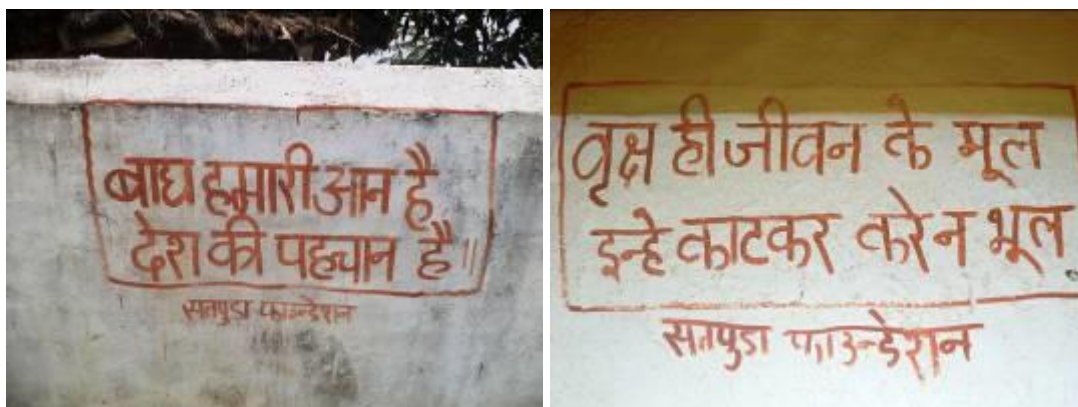 बाघ हमारी आन है
देश की पहचान है॥
सतपुडा फाउन्डेशन
वृक्ष ही जीवन के मूल
इन्हे काटकर करे न भूल
सतपुडा फाउन्डेशन